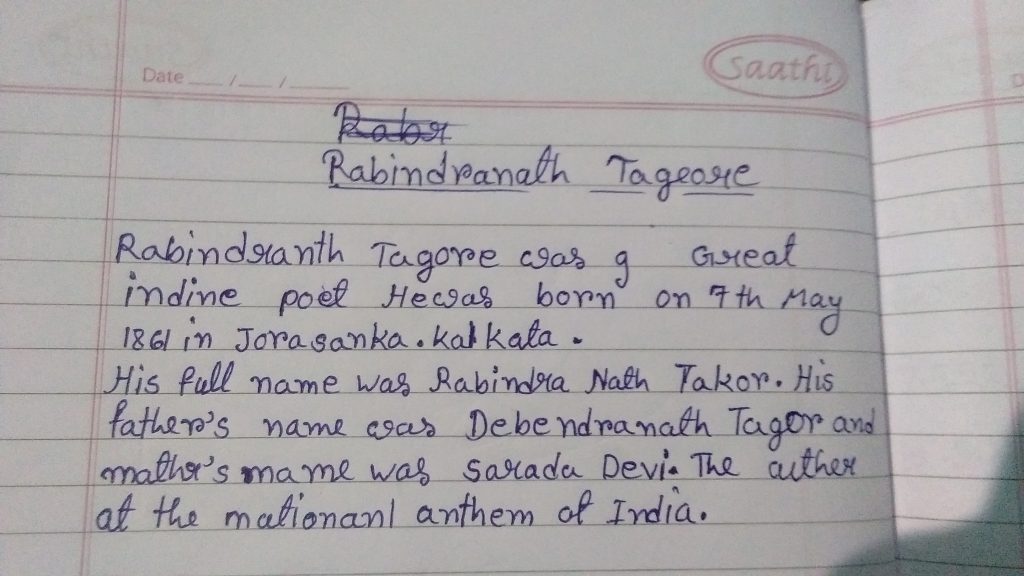 Date __/__/____
Saathi
Rabr
Rabindranath Tageore
Rabindranth Tagore was g Great
indine poet Hewas born on 7th May
1861 in Jorasanka. kalkata.
His full name was Rabindra Nath Takor. His
father's name was Debendranath Tagor and
mather's mame was sarada Devi. The auther
at the mationanl anthem of India.